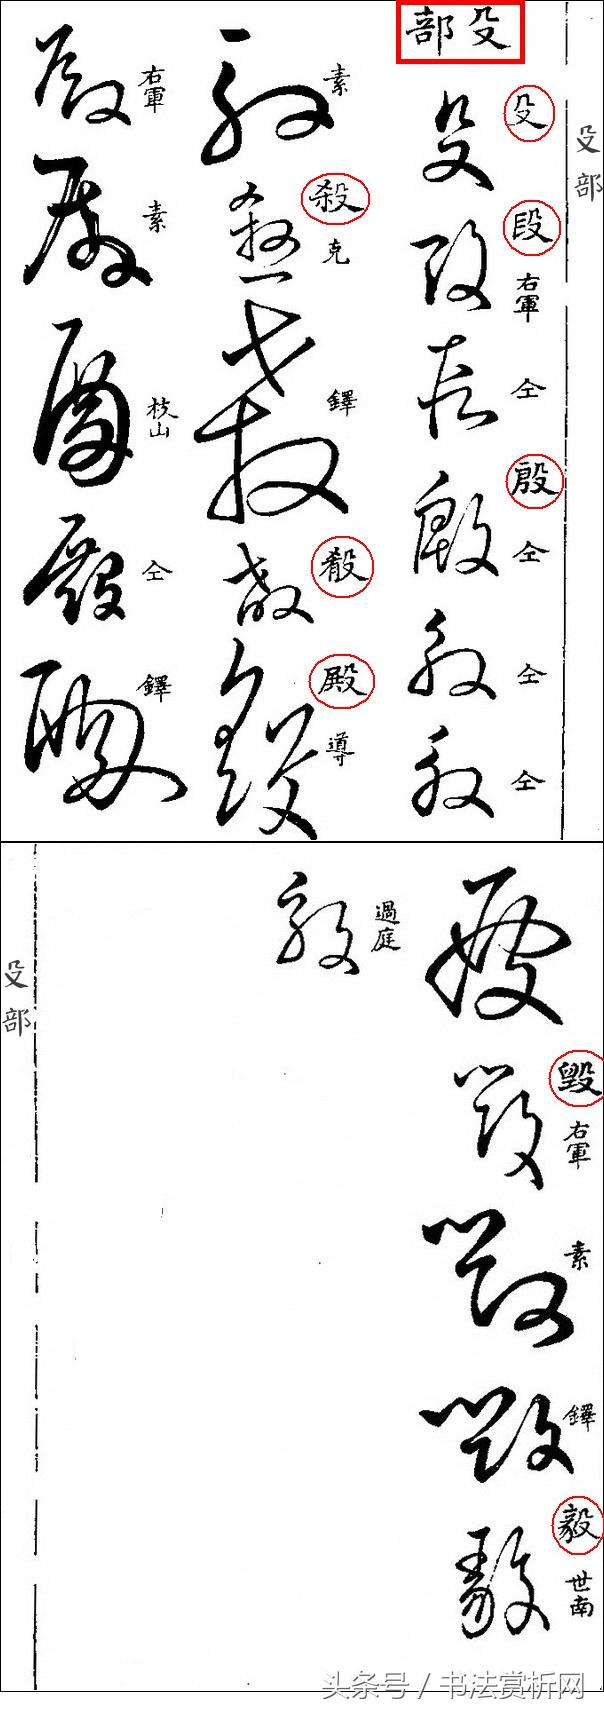 殳部
殳
段
右軍
仝
殷
仝
仝
仝
素
殺
克
鐸
殽
殿
導
右軍
素
枝山
仝
鐸
殳部
毀
右軍
素
鐸
毅
世南
過庭
殳部
头条号 / 书法赏析网